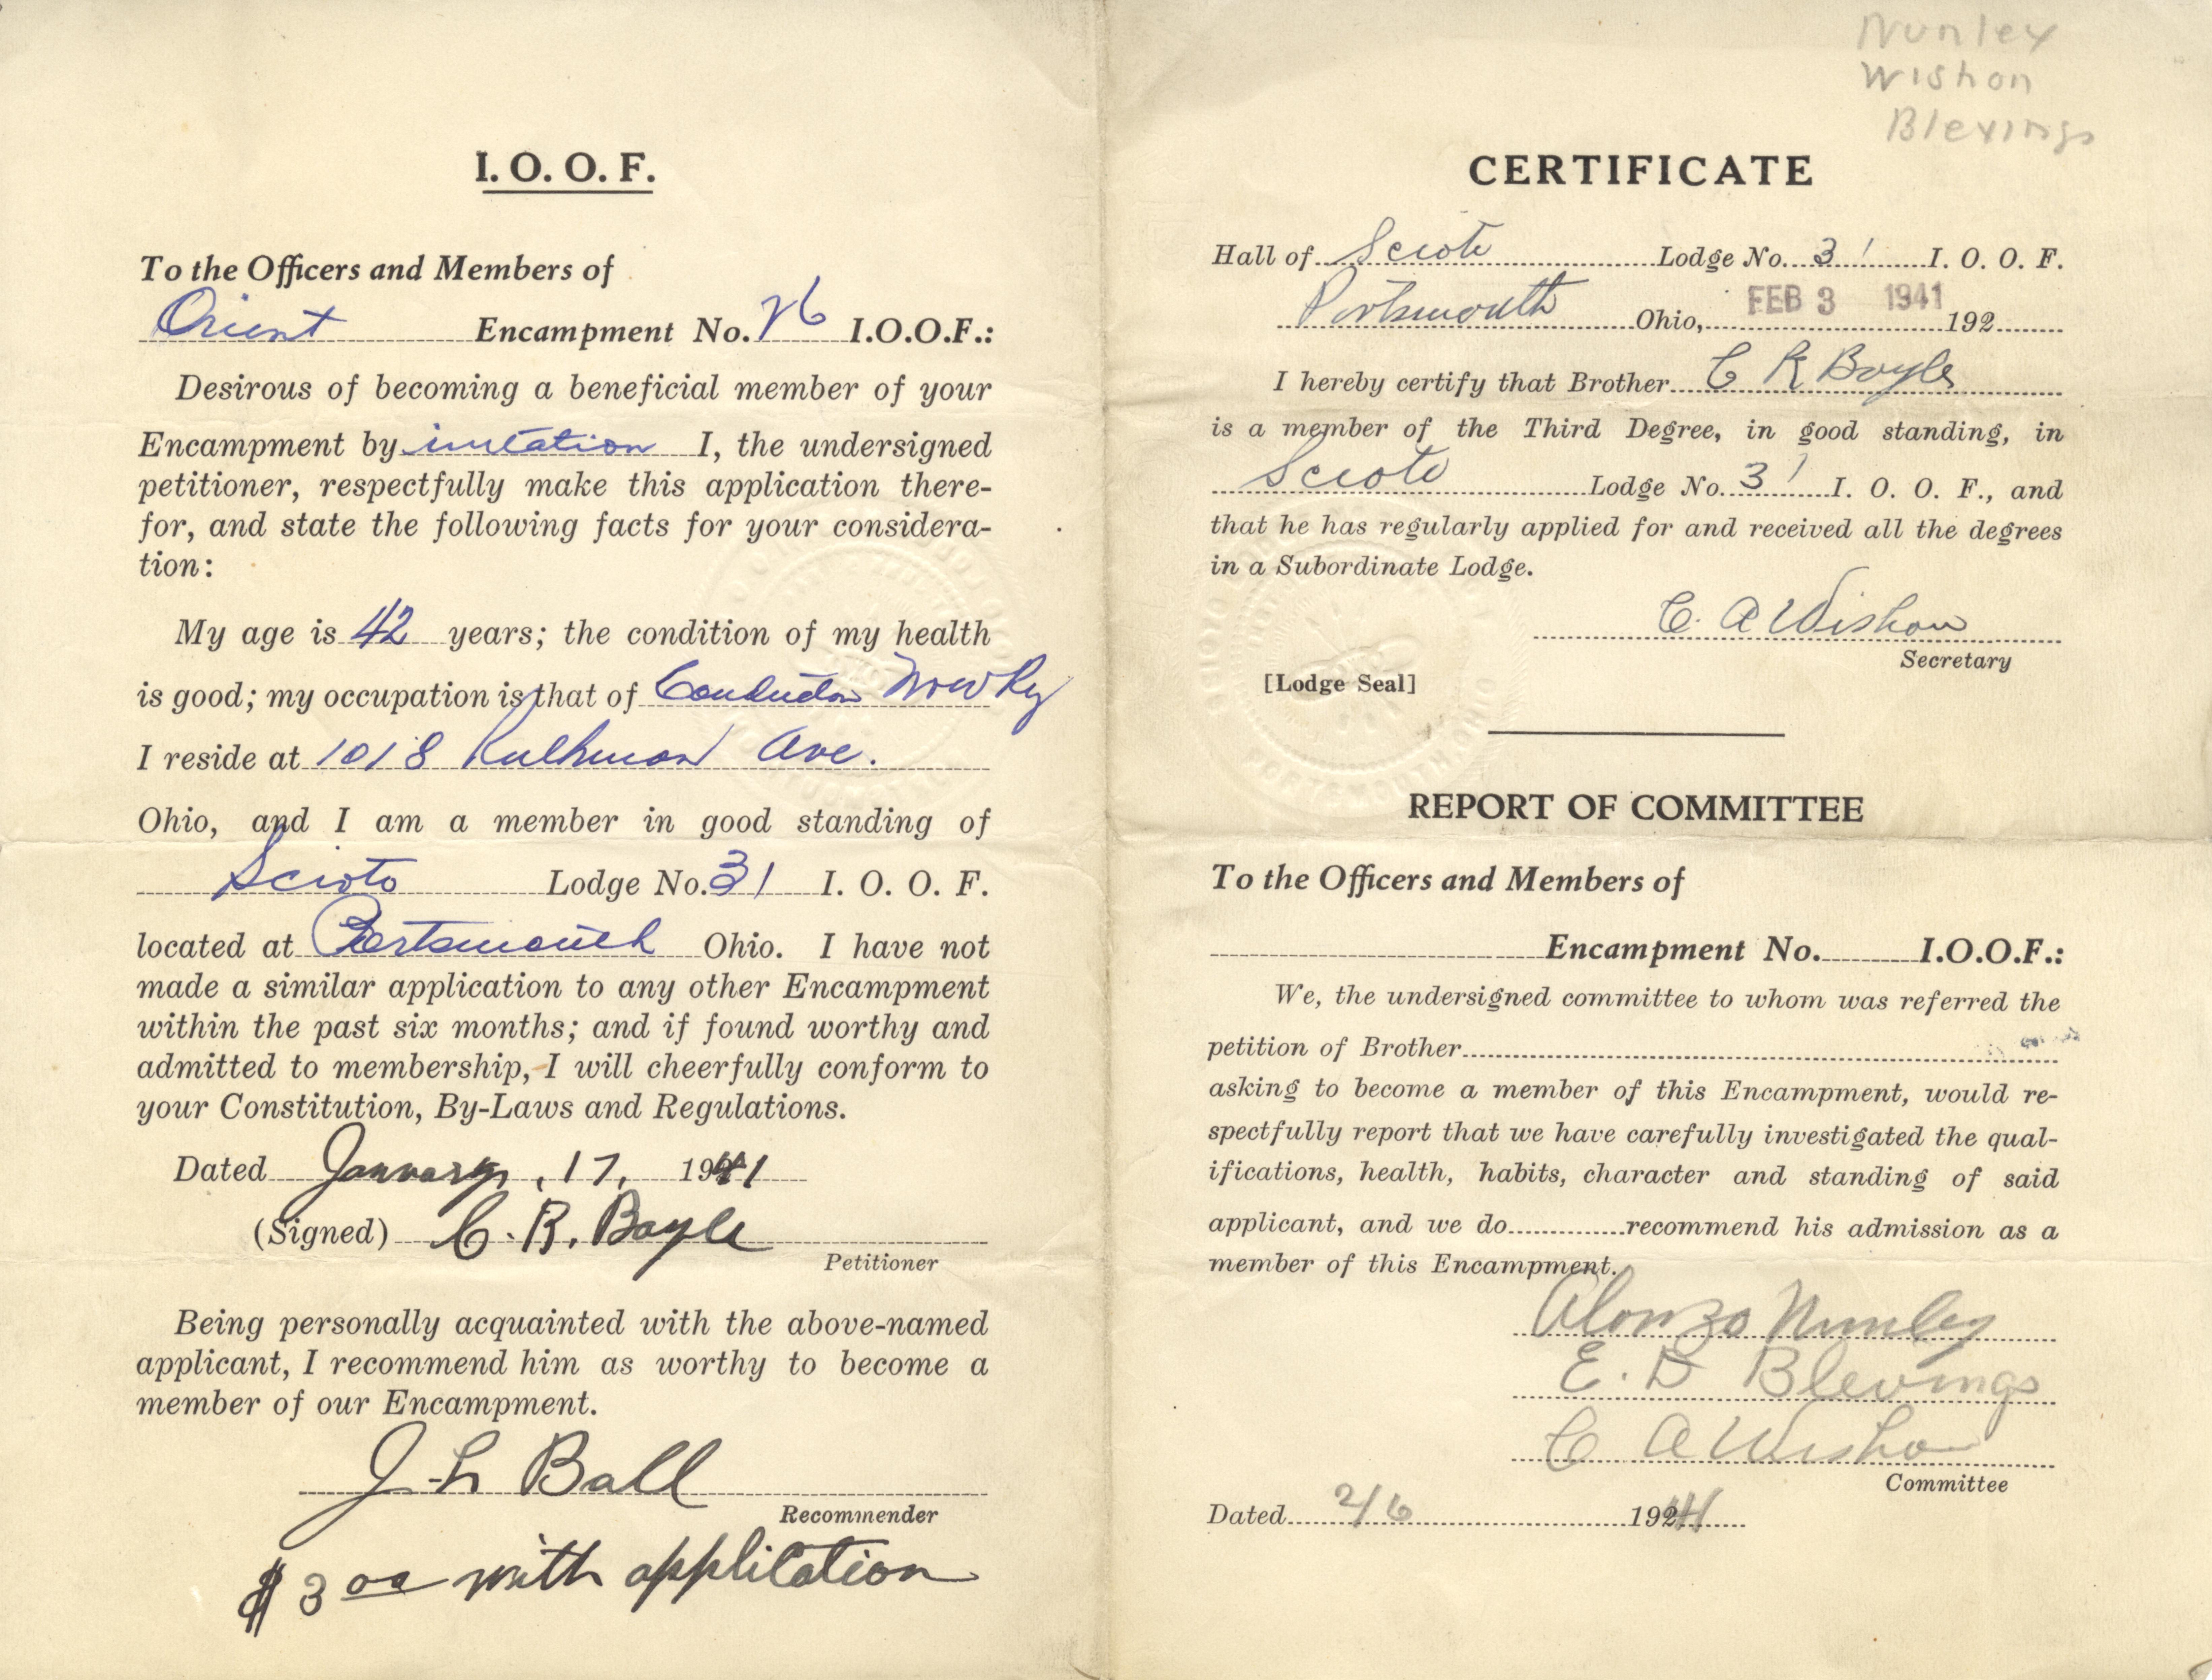 I. O. O. F.
To the Officers and Members of
Orient Encampment No. 26 I.O.O.F.:
Desirous of becoming a beneficial member of your
Encampment by initation I, the undersigned
petitioner, respectfully make this application there-
for, and state the following facts for your considera-
tion:
My age is 42 years; the condition of my health
is good; my occupation is that of Conductor N&W Ry
I reside at 1018 Kulhman Ave.
Ohio, and I am a member in good standing of
Scioto Lodge No. 31 I. O. O. F.
located at Portsmouth Ohio. I have not
made a similar application to any other Encampment
within the past six months; and if found worthy and
admitted to membership, I will cheerfully conform to
your Constitution, By-Laws and Regulations.
Dated January, 17, 1941
(Signed) C. R. Boyle
Petitioner
Being personally acquainted with the above-named
applicant, I recommend him as worthy to become a
member of our Encampment.
J. L Ball
Recommender
$3 00 with applitation
Nunley
Wishon
Blevings
CERTIFICATE
Hall of Scioto Lodge No. 31 I. O. O. F.
Portsmouth Ohio, FEB 3 1941 192
I hereby certify that Brother C R Boyle
is a member of the Third Degree, in good standing, in
Scioto Lodge No. 31 I. O. O. F., and
that he has regularly applied for and received all the degrees
in a Subordinate Lodge.
C. A Wishon
Secretary
[Lodge Seal]
REPORT OF COMMITTEE
To the Officers and Members of
Encampment No. I.O.O.F.:
We, the undersigned committee to whom was referred the
petition of Brother
asking to become a member of this Encampment, would re-
spectfully report that we have carefully investigated the qual-
ifications, health, habits, character and standing of said
applicant, and we do recommend his admission as a
member of this Encampment.
Alonzo Nunley
E. D Blevings
C A Wishon
Committee
Dated 2/6 1941